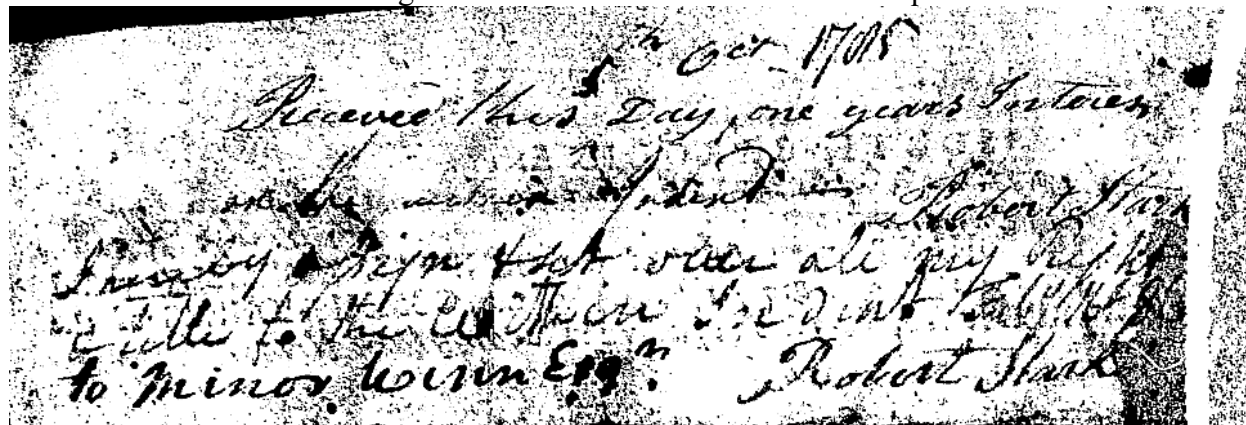 5th Oct 1785
Received this Day, one years Interes
on the within Indent — Robert Stark
I hereby assign & set over all my Right
& title to the Within Indent
to Minor Winn Esqr. Robert Stark